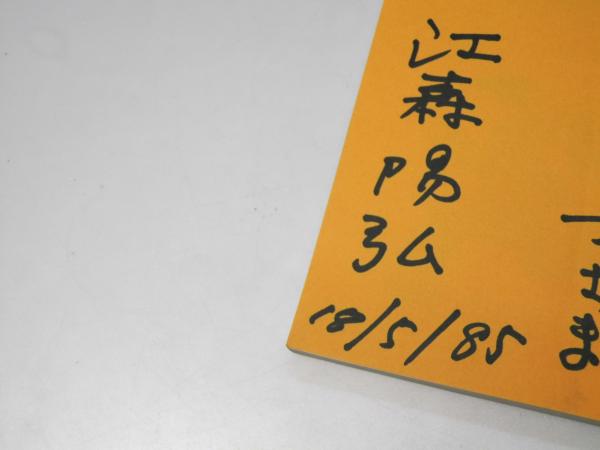 江森
陽弘
18/5/85